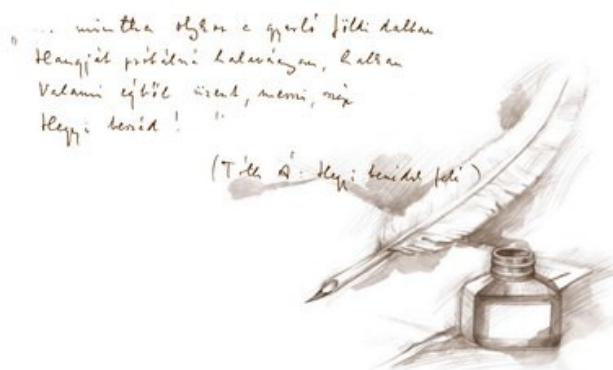 "... mintha olykor e gyarló földi dalban
Hangját próbálná halaványan, halkan
Valami égből üzent, messzi, szép
Hegyi beszéd! "
(Tóth Á. Hegyi beszédek felé)